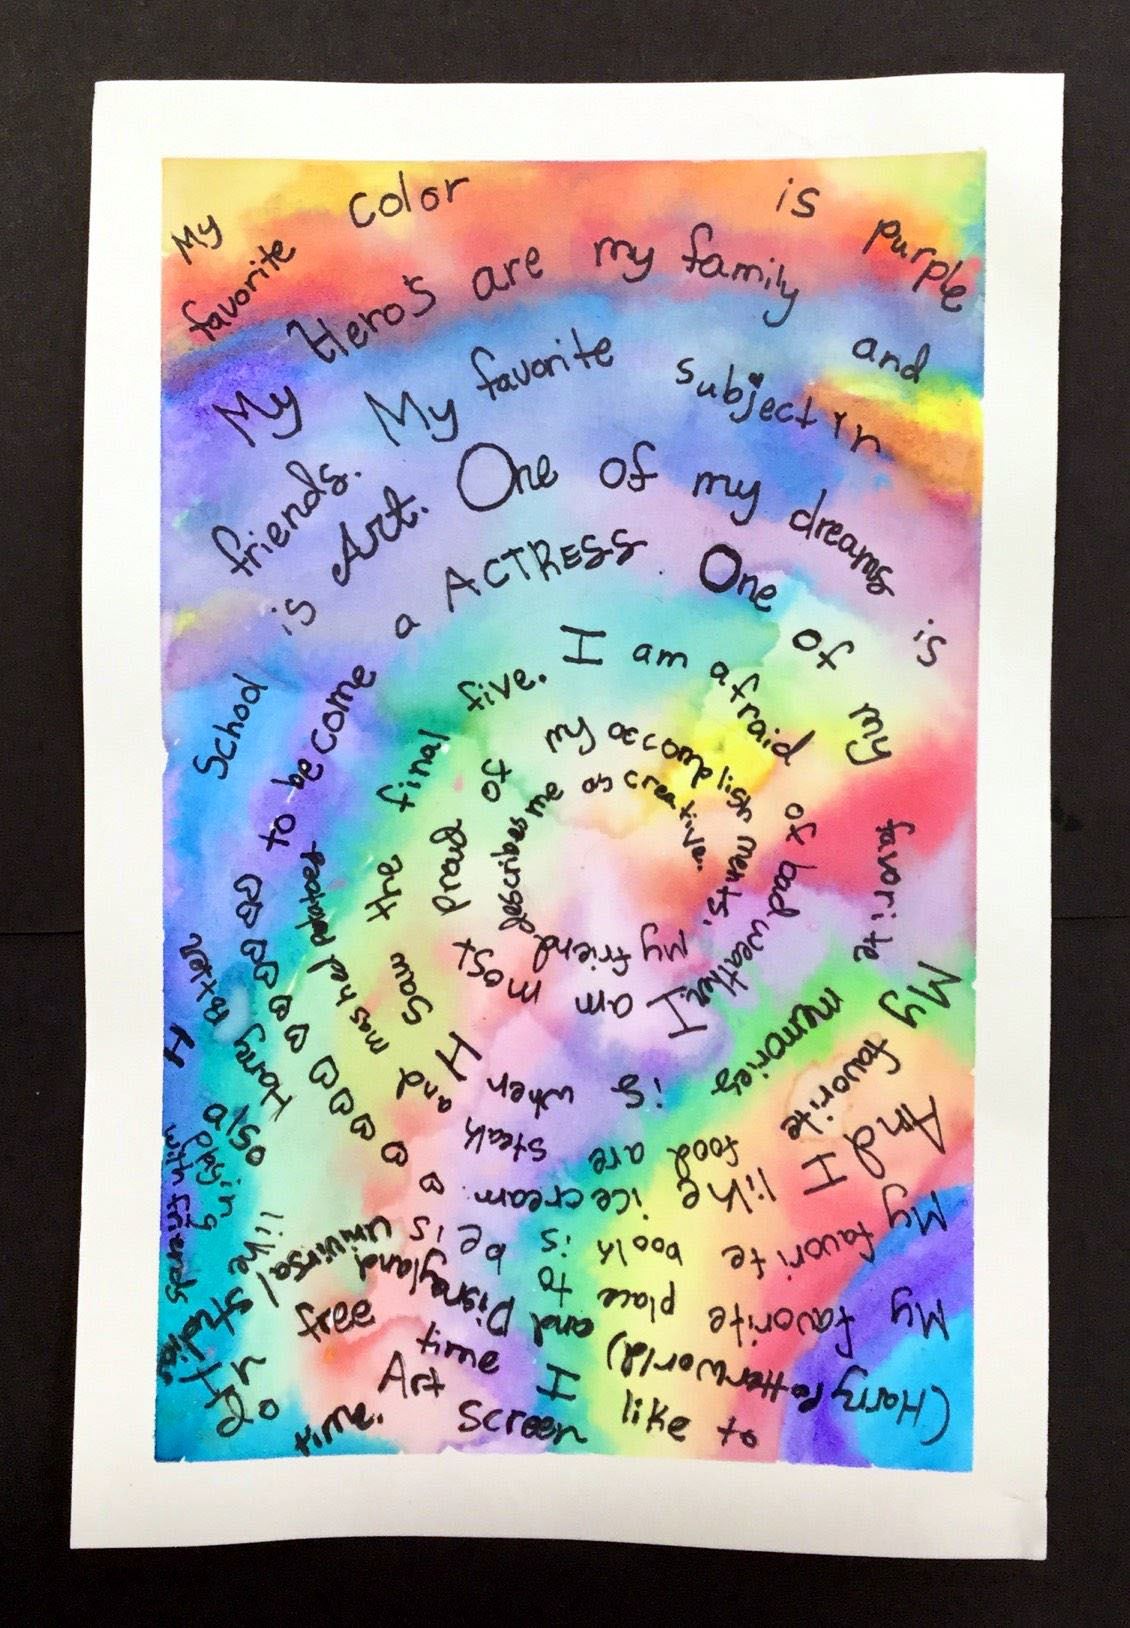 My favorite color is purple
My Hero's are my family and
friends. My favorite subject in
School is Art. One of my dreams is
to become a ACTRESS. One of my favorite
memories is when I saw the final five. I am afraid
of bad weather. I am most proud of my accomplishments.
My friend describes me as creative.
My favorite food are steak and mashed
And I like ice cream.
My favorite book is Harry Potter
My favorite place to be is Universal Studios
(Harry Potter World) and Disneyland
free time I like to
do Art Screen time.
I also like
with friends